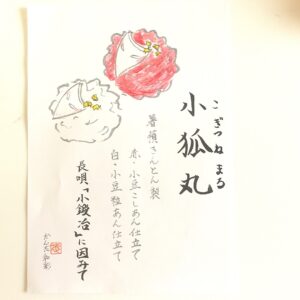 こぎつねまる
小狐丸
薯蕷きんとん製
赤・小豆こしあん仕立て
白・小豆粒あん仕立て
長唄「小鍛冶」に因みて